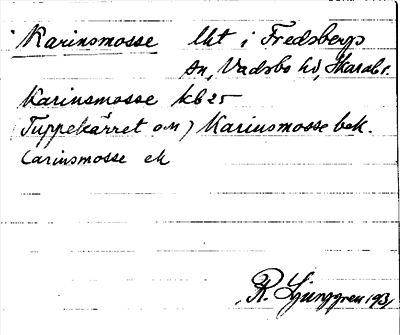 Karinsmosse lht i Fredsbergs
sn, Vadsbo hd, Skarab l.
Karinsmosse kb 25
Tuppekärret o m ) Karinsmosse bek.
Carinsmosse ek
R. Ljunggren 1931